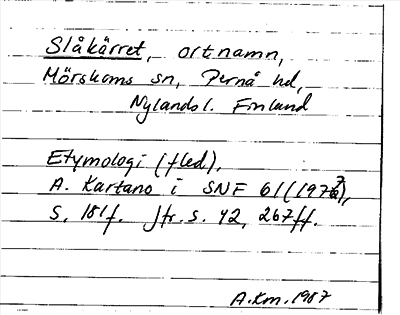 Slåkärret, ortnamn,
Mörskoms sn, Pernå hd,
Nylands l. Finland
Etymologi (fled),
A. Kartano i SNF 61 (197),
s. 181f. Jfr. s. 42, 267ff.
A.Km. 1987